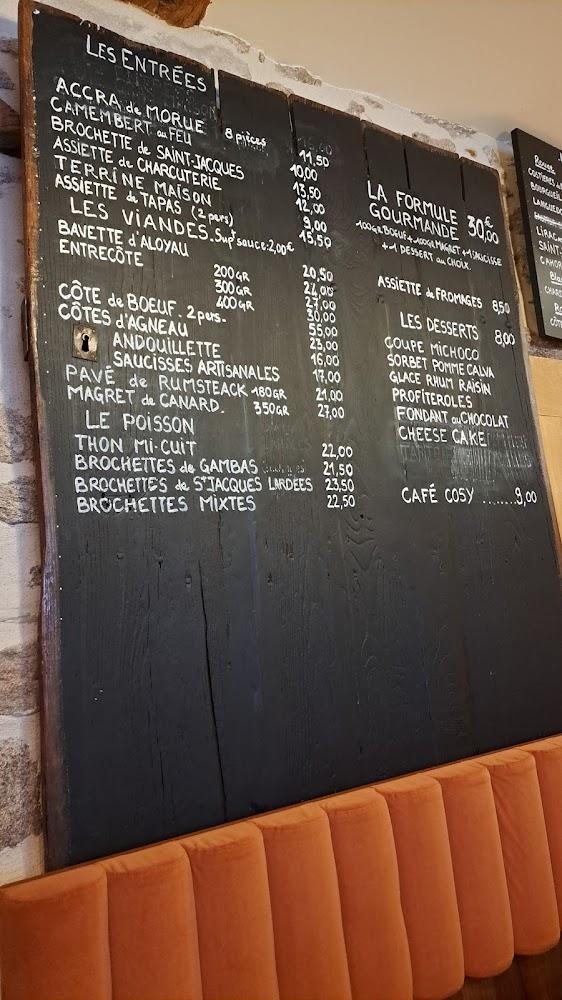 LES ENTRÉES
ACCRA de MORUE 8 pièces 11,50
CAMEMBERT au FEU 10,00
BROCHETTE de SAINT-JACQUES 13,50
ASSIETTE de CHARCUTERIE 12,00
TERRINE MAISON 9,00
ASSIETTE de TAPAS (2 pers) 15,50
LES VIANDES. Supt sauce: 2,00€
BAVETTE d'ALOYAU 20,50
ENTRECÔTE
200GR 24,00
300GR 27,00
400GR 30,00
CÔTE de BOEUF. 2 pers- 55,00
CÔTES d'AGNEAU 23,00
ANDOUILLETTE 16,00
SAUCISSES ARTISANALES 17,00
PAVÉ de RUMSTEACK 180GR 21,00
MAGRET de CANARD. 350GR 27,00
LE POISSON
THON MI-CUIT 22,00
BROCHETTES de GAMBAS 21,50
BROCHETTES de ST JACQUES LARDÉES 23,50
BROCHETTES MIXTES 22,50
LA FORMULE
GOURMANDE 30,00€
100GR BOEUF + 100GR MAGRET + 1 SAUCISSE
+ 1 DESSERT au CHOIX
ASSIETTE de FROMAGES 8,50
LES DESSERTS 8,00
COUPE MICHOCO
SORBET POMME CALVA
GLACE RHUM RAISIN
PROFITEROLES
FONDANT au CHOCOLAT
CHEESE CAKE
CAFÉ COSY ........9,00
Rouge
COSTIÈRES
BOURGUEIL
LIRAC
SAINT